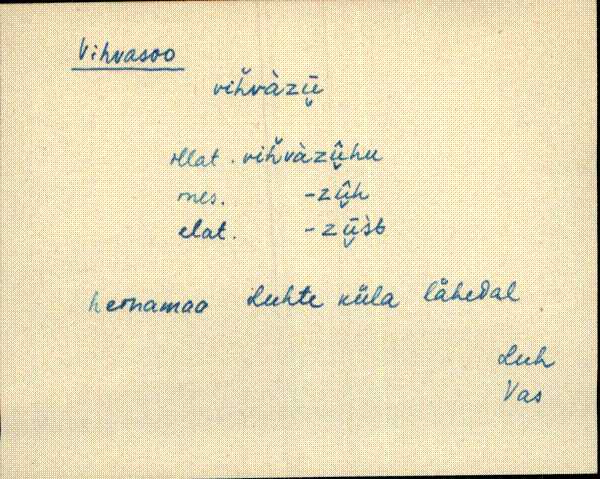 Vihvasoo
viȟvàzū̬
illat. viȟvàzū̬̂hu
ines. -zū̬̂h
elat. -zū̬s̀t
heinamaa Luhte küla lähedal
Luh
Vas